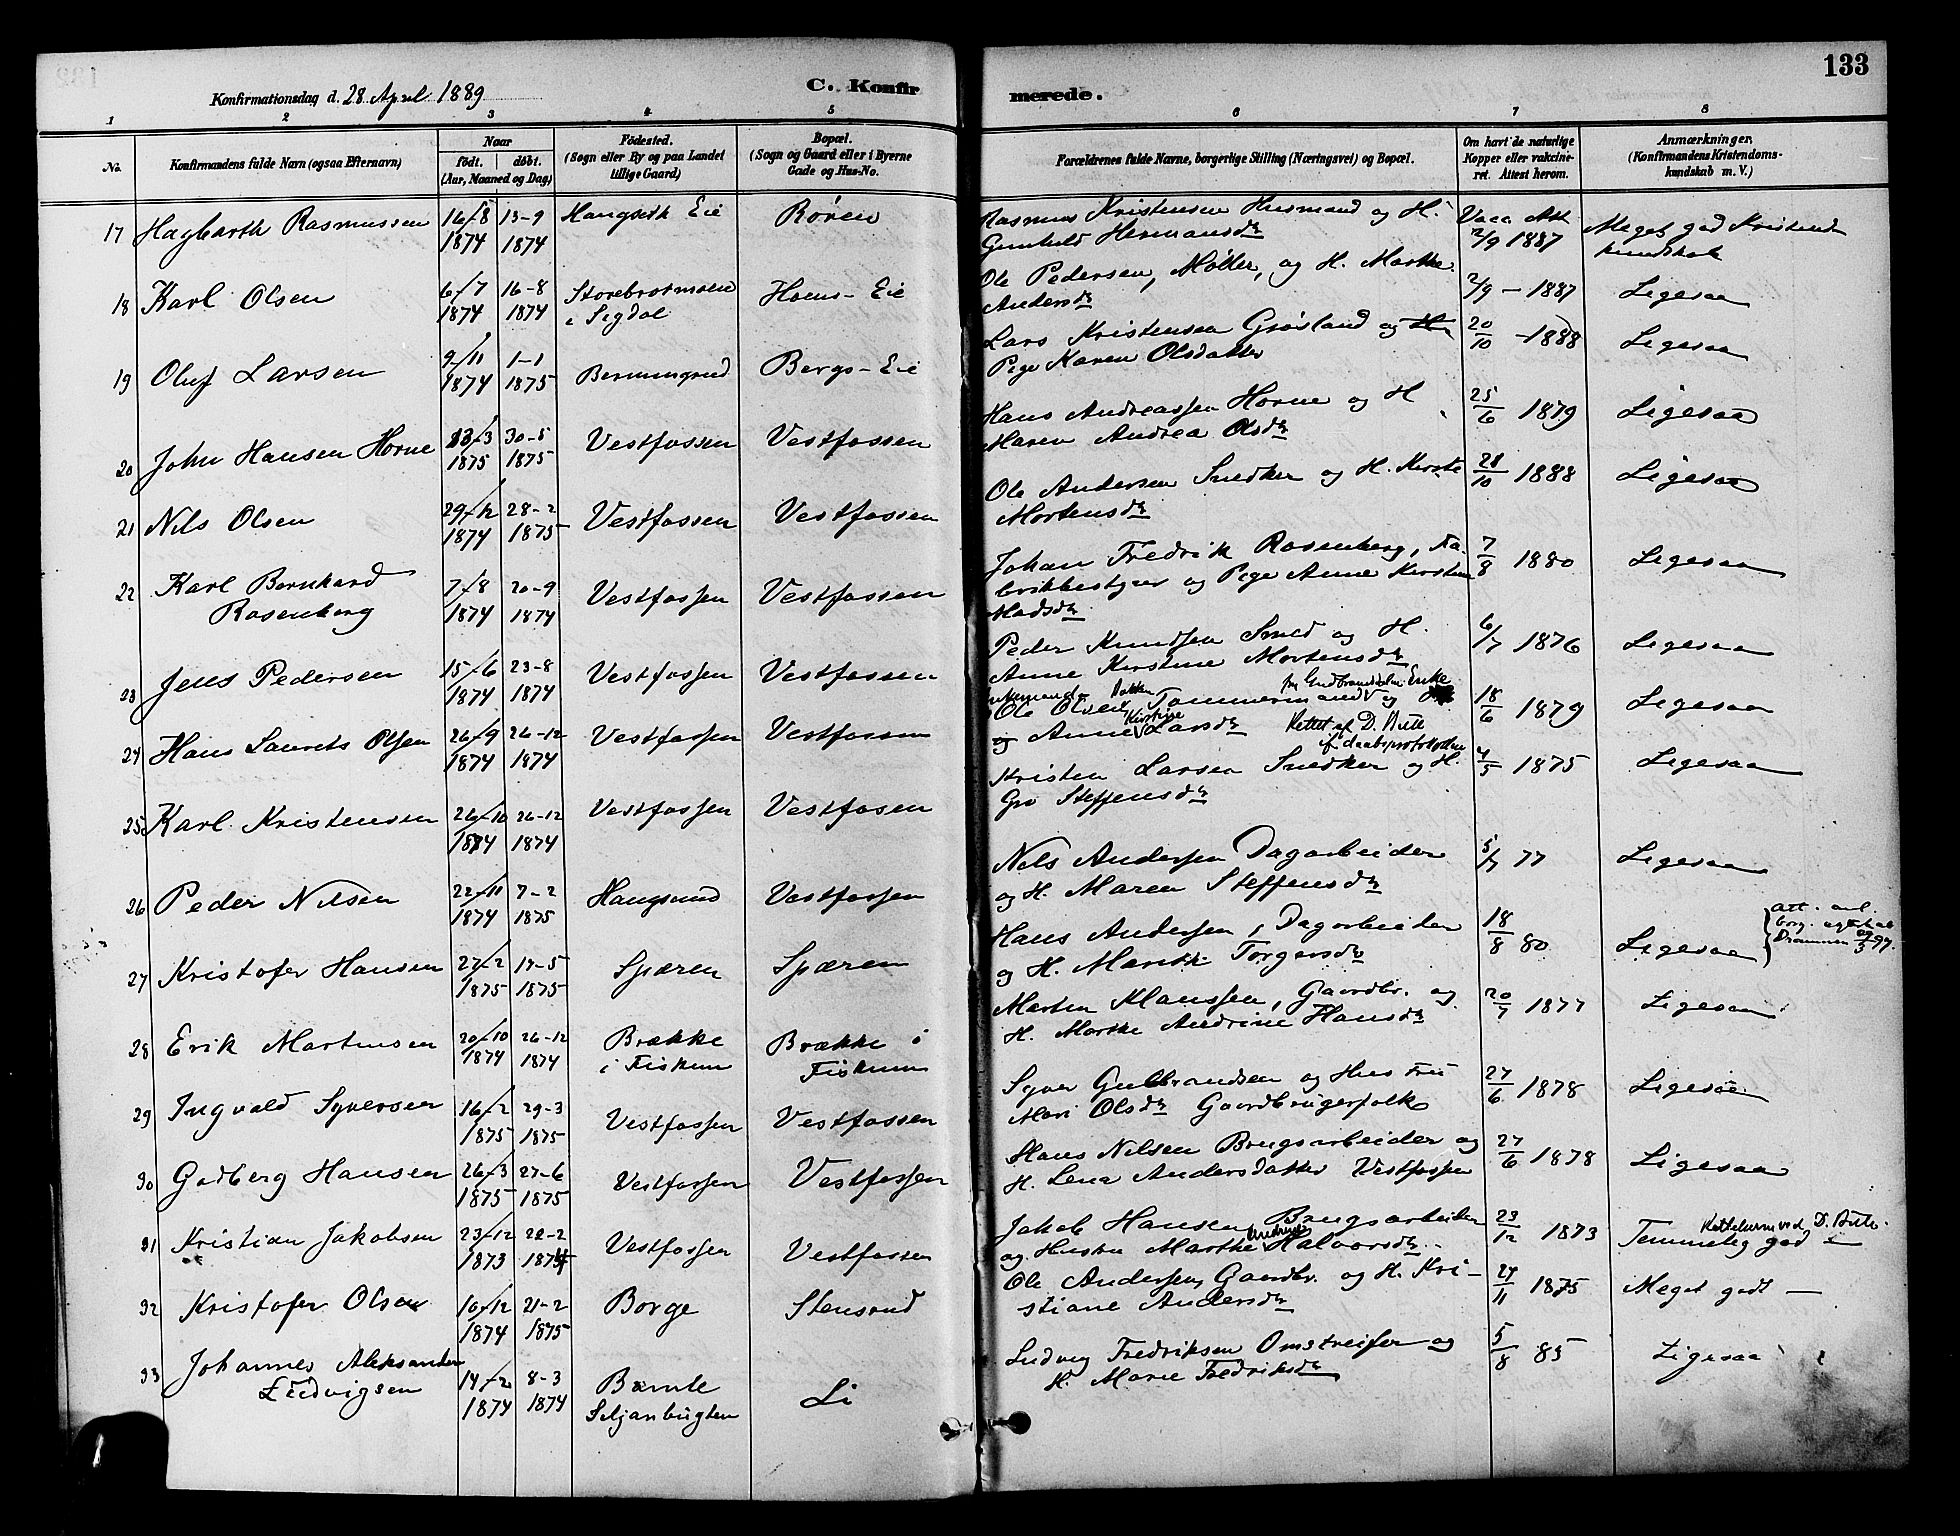 133
Konfirmationsdag d. 28 April 1889
C. Konfir
merede.
1 2 3 4 5 6 7 8
No.
Konfirmandens fulde Navn (ogsaa Efternavn)
Naar
födt. döbt.
(Aar, Maaned og Dag)
Födested.
(Sogn eller By og paa Landet
tillige Gaard)
Bopæl.
(Sogn og Gaard eller i Byerne
Gade og Hus-No.
Forældrenes fulde Navne, borgerlige Stilling (Næringsvei) og Bopæl.
Om havt de naturlige
Kopper eller vakcine-
ret. Attest herom.
Anmærkninger.
(Konfirmandens Kristendoms-
kundskab m. V.)
17 Hagbarth Rasmussen 16/8 1874 13-9 1874 Eie Røren
Rasmus Kristensen Husmand og H.
Gunhild Hermansdr
Vacc Att 2/9 1887
Meget god Kristend
kundskab
18 Karl Olsen 6/7 1874 16-8 1874 Storebrotmoen
i Sigdal
Hoens-Eie
Ole Pedersen, Møller, og H. Marthe
Andersdr
2/9 - 1887 Ligesaa
19 Oluf Larsen 9/11 1874 1-1 1875 Bergs-Eie
Lars Kristensen Grøsland og
Pige Karen Olsdatter
20/10 - 1888 Ligesaa
20 John Hansen Horne 13/3 1875 30-5 1875 Vestfossen Vestfossen
Hans Andreassen Horne og H
Maren Andrea Olsdr
25/6 1879 Ligesaa
21 Nils Olsen 29/12 1874 28-2 1875 Vestfossen Vestfossen
Ole Andersen Snedker og H. Kirste
Mortensdr
28/10 1888 Ligesaa
22 Karl Bernhard
Rosenberg
7/8 1874 20-9 1874 Vestfossen Vestfossen
Johan Fredrik Rosenberg, Fa-
brikbestyrer og Pige Anne Kirstine
Madsdr
7/8 1880 Ligesaa
23 Jens Pedersen 15/6 1874 23-8 1874 Vestfossen Vestfossen
Peder Knudsen Smed og H.
Anne Kirstine Mortensdr
6/7 1876 Ligesaa
24 Hans Laurits Olsen 26/9 1874 26-12 1874 Vestfossen Vestfossen
Ole Olsen Tømmermand og Enke
fra Gudbrandsdalen
og Anne Kirstine Larsdr Rettet af D. Bute
18/6 1879 Ligesaa
25 Karl Kristensen 26/10 1874 26-12 1874 Vestfossen Vestfosen
Kristen Larsen Snedker og H.
Gro Steffensdr
4/5 1875 Ligesaa
26 Peder Nilsen 22/11 1874 7-2 1875 Haugsund Vestfossen
Nils Andersen Dagarbeider
og H. Maren Steffensdr
5/7 77 Ligesaa
27 Kristofer Hansen 27/2 1875 17-5 1875 Spæren Spæren
Hans Andersen, Dagarbeider
og H. Marthe Torgersdr
18/8 80 Ligesaa
28 Erik Martinsen 20/10 1874 26-12 1874 Brække
i Fiskum
Brække i
Fiskum
Marten Klaussen, Gaardbr. og
H. Marthe Andrine Hansdr
20/7 1877 Ligesaa
29 Ingvald Syversen 16/2 1875 29-3 1875 Vestfossen Vestfossen
Syver Gulbrandsen og Hustru
Mari Olsdr Gaardbrugerfolk
27/6 1878 Ligesaa
30 Godberg Hansen 26/3 1875 27-6 1875 Vestfossen Vestfossen
Hans Nilsen Brugsarbeider og
H. Lena Andersdatter Vestfossen
27/6 1878 Ligesaa
31 Kristian Jakobsen 23/12 1873 22-2 1874 Vestfossen Vestfossen
Jakob Hansen Brugsarbeider
og Hustru Marthe Andrine Halvorsdr
23/12 1873 Temmelig god
32 Kristofer Olsen 10/12 1874 21-2 1875 Borge Stensrud
Ole Andersen, Gaardbr. og H. Kri-
stiane Andersdr
27/11 1875 Meget godt
33 Johannes Aleksander
Ludvigsen
14-2 1874 8-3 1874 Bamle
Seljanbugten
Li
Ludvig Fredriksen Omstreifer og
H. Marie Fredriksdr
5/8 85 Ligesaa